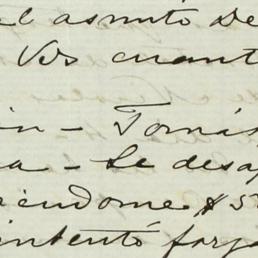 el asunto de
Vds cuant
in - Tomás
a - Se desa
iendome $5
intentó forz